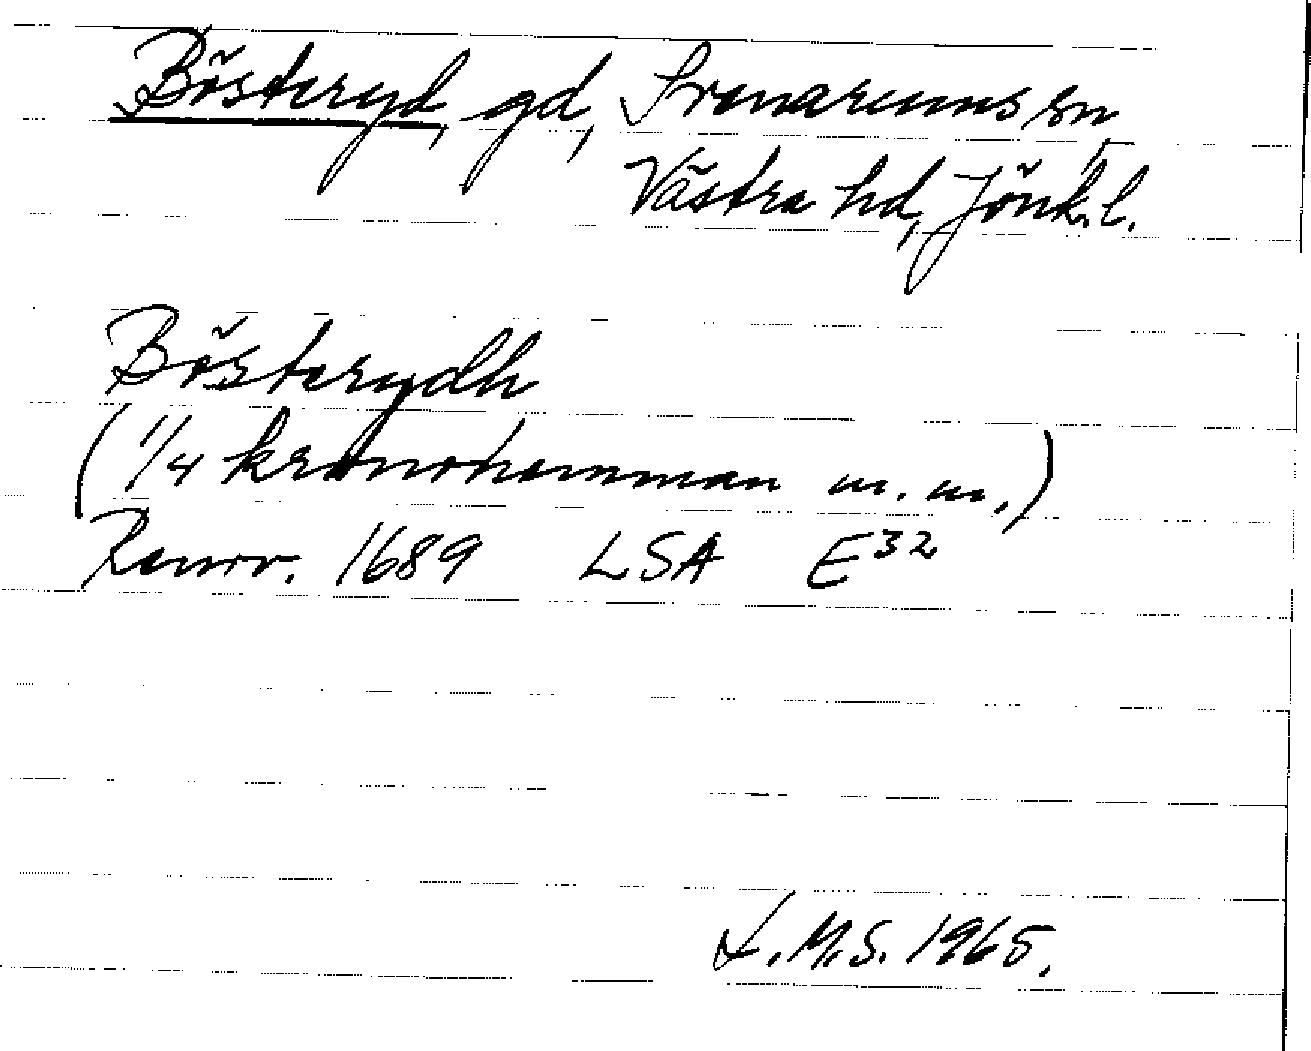 Bösteryd, gd, Svenarums sn,
Västra hd, Jönk. l.
Bösterydh
(1/4 kronohemman m. m.)
Renov. 1689 LSA E32
L. M. S. 1965.